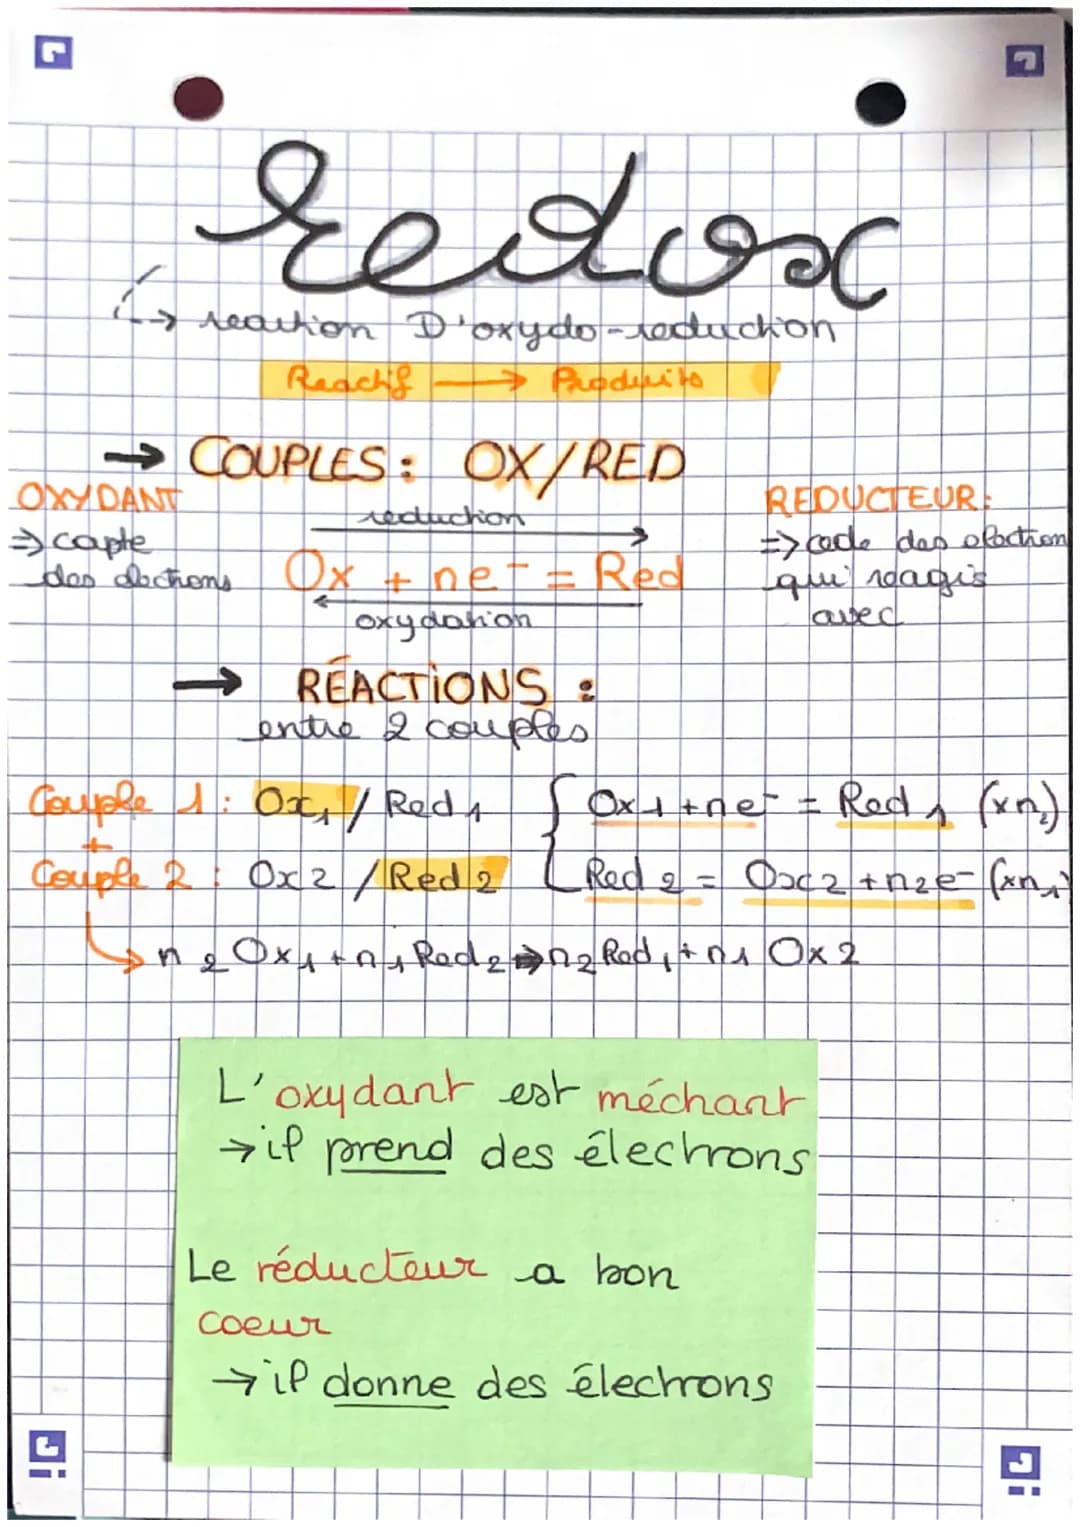 redox
↳ reaction D'oxydo-reduction
Reactif → Produits
→ COUPLES : OX/RED
OXYDANT
⇒ capte
des electrons
reduction
Ox + ne⁻ = Red
oxydation
REDUCTEUR:
⇒ cede des electron
qui reagis
avec
→ RÉACTIONS :
entre 2 couples
Couple 1 : Ox₁ / Red₁
+
Couple 2 : Ox2 / Red2
Ox1 + ne⁻ = Red₁ (xn₂)
Red₂ = Ox2 + n₂e⁻ (xn₁)
↳ n₂ Ox₁ + n₁ Red₂ ⇒ n₂ Red₁ + n₁ Ox2
L'oxydant est méchant
→ il prend des électrons
Le réducteur a bon
coeur
→ il donne des électrons